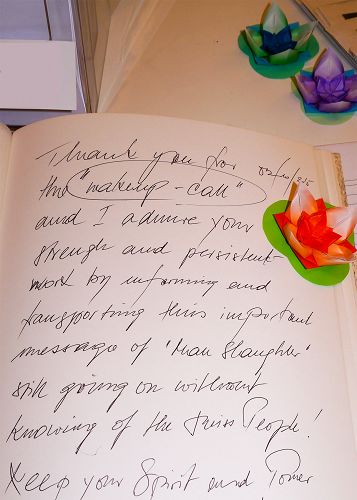 Thank you for 03/10/2015
this "wakeup-call"
and I admire your
strengh and persistent
work by informing and
transporting this important
message of "Man Slaughter"
still going on without
knowing of the Swiss People!
Keep your Spirit and Power